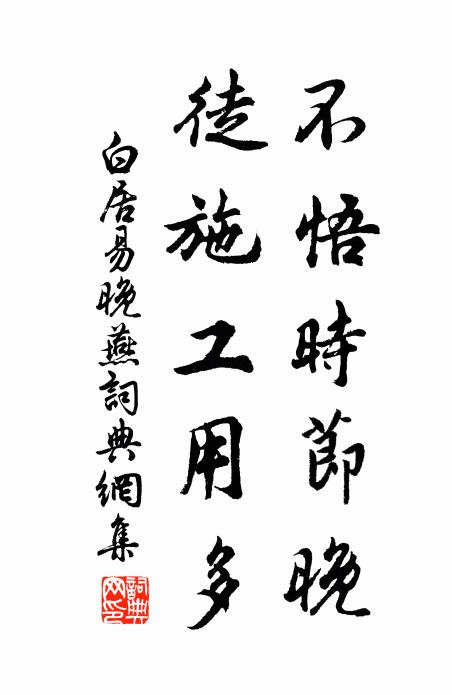 不悟時節晚
徒施工用多
白居易晚燕詞典網集
詞典網印